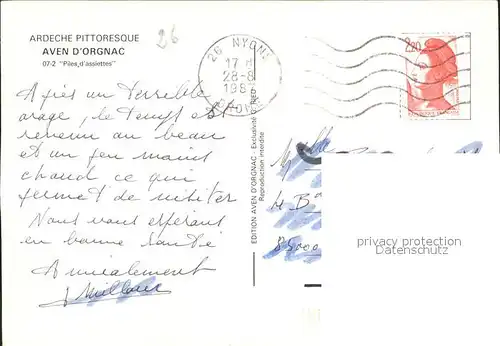 ARDECHE PITTORESQUE
AVEN D'ORGNAC
07-2 "Piles d'assiettes"
26
26 NYONS
17 H
28-8
198
DROME
2,20
Après un terrible
orage, le temps est
revenu au beau
et un peu moins
chaud ce qui
permet de visiter
Nous vous espérant
en bonne santé
Amicalement
EDITION AVEN D'ORGNAC - Exclusivité
Reproduction interdite
Melle
4 B
85000
privacy protection
Datenschutz